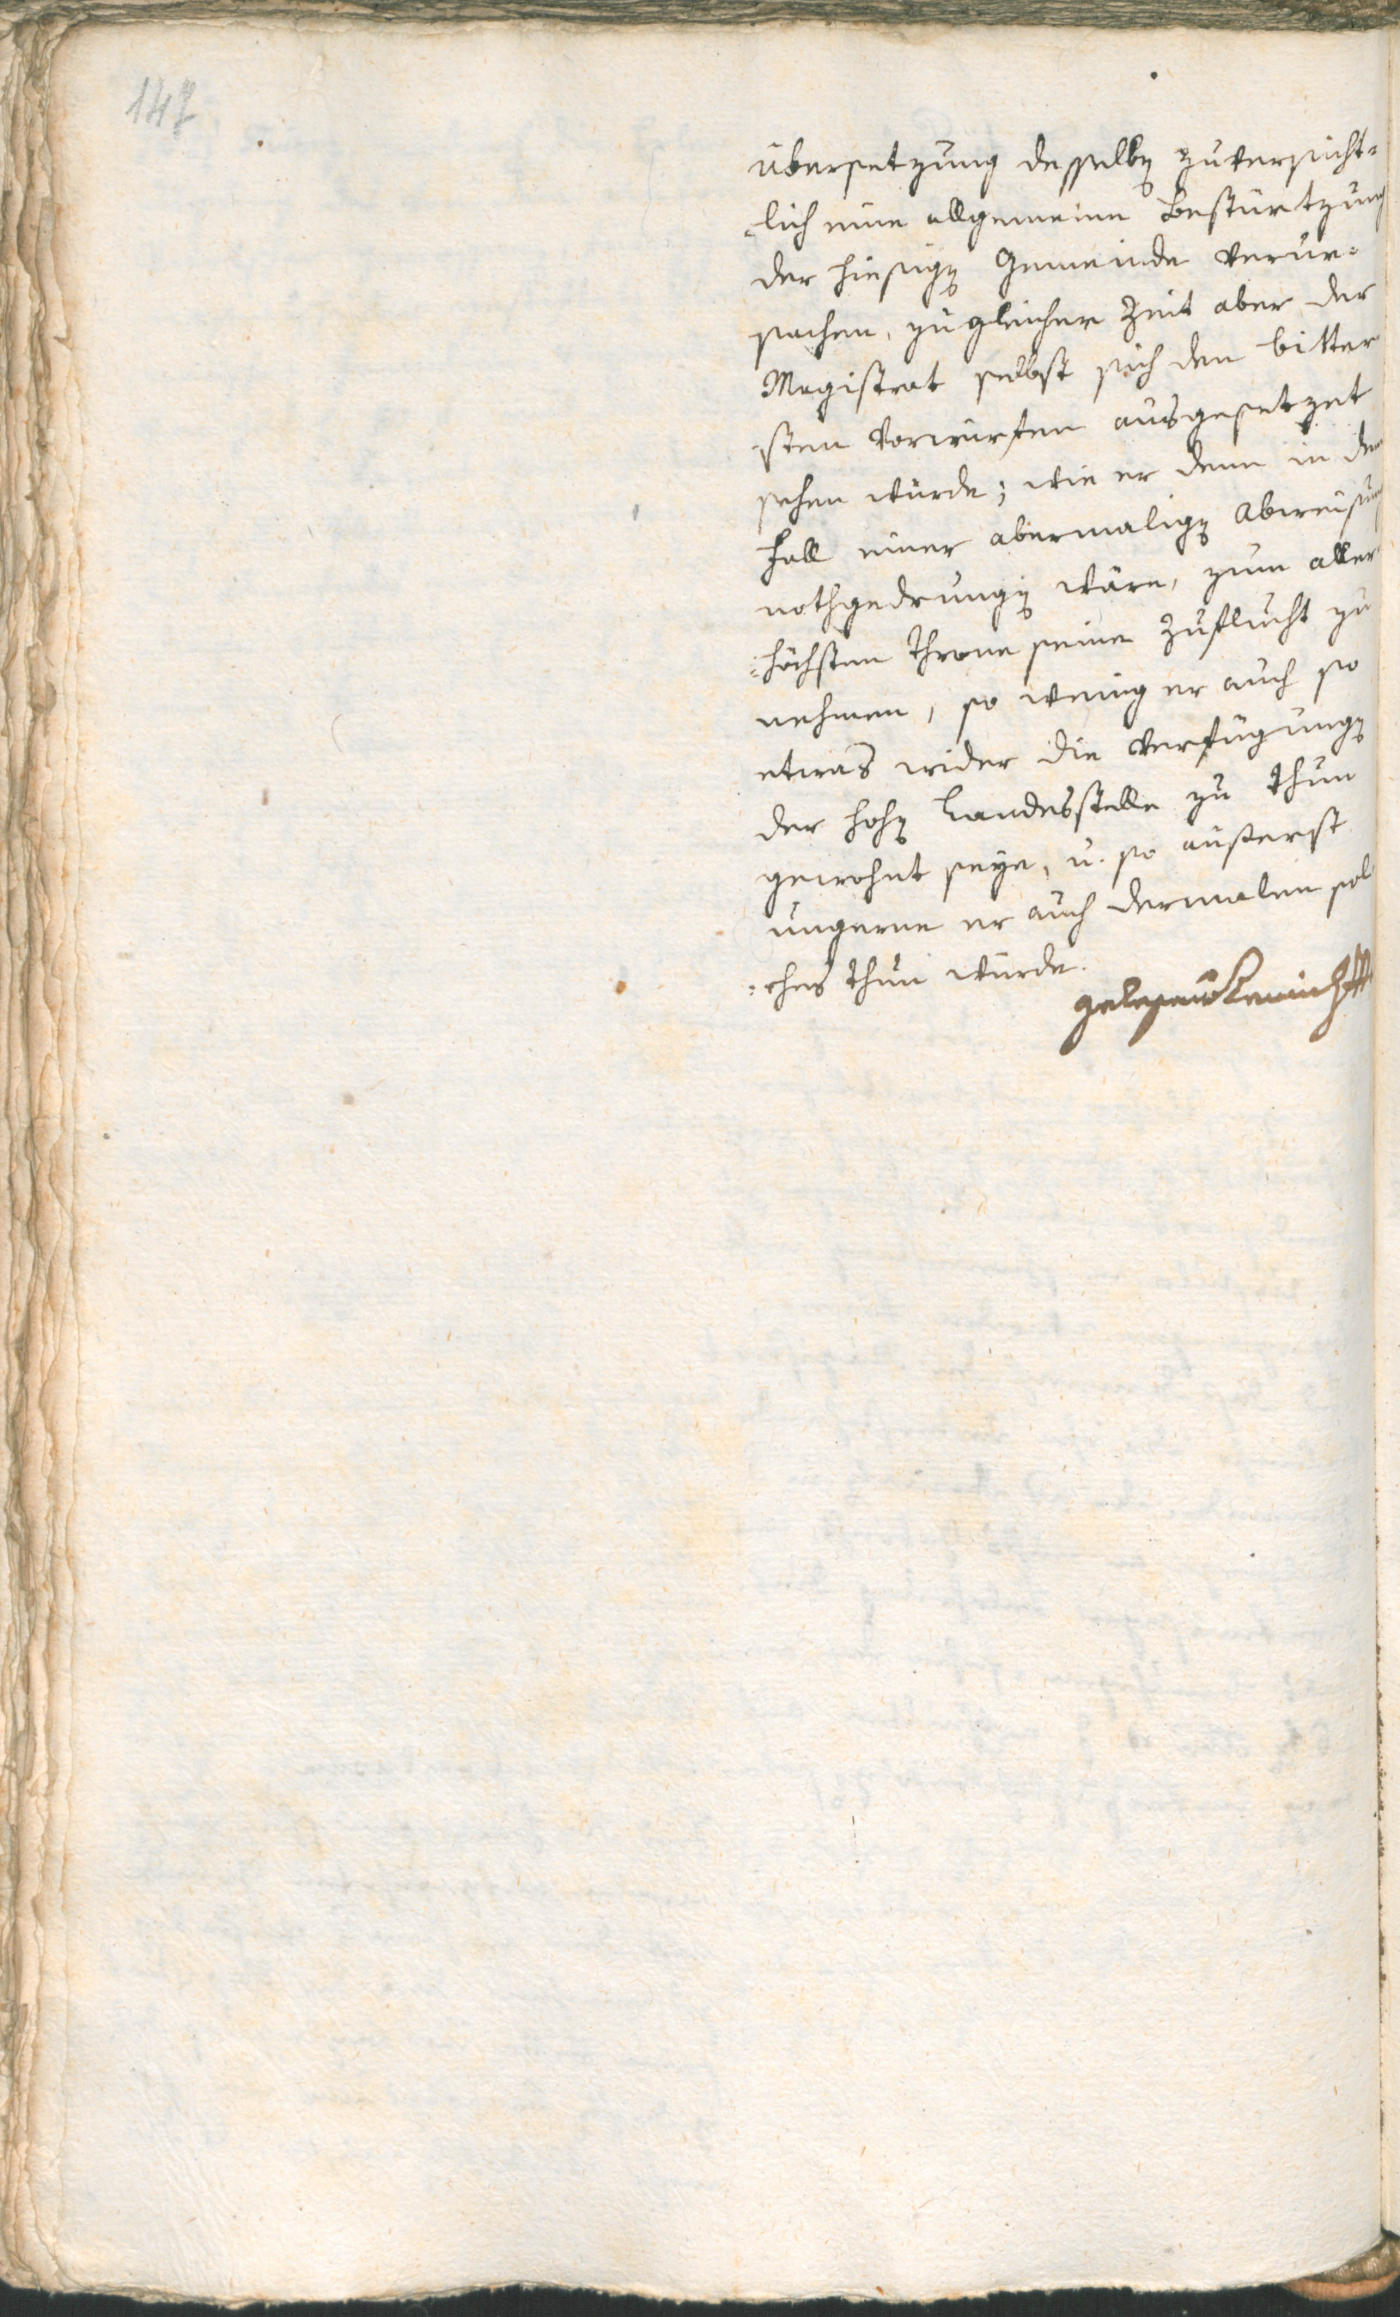 147
übersetzung desselben zuversicht=
=lich eine allgemeine Bestürtzung
der hiesigen Gemeinde verur=
sachen, zu gleicher Zeit aber der
Magistrat selbst sich den bitter
=sten Vorwürfen ausgesetzet
sehen würde; wie er denn in dem
Fall einer abermaligen Abweisung
nothgedrungen wäre, zum aller
=höchsten Throne seine Zuflucht zu
nehmen, so wenig er auch so
etwas wider die Verfügungen
der hohen Landesstelle zu thun
gewohnt seye, u. so äußerst
ungerne er auch dermalen sol
=ches thun würde.
gelesen